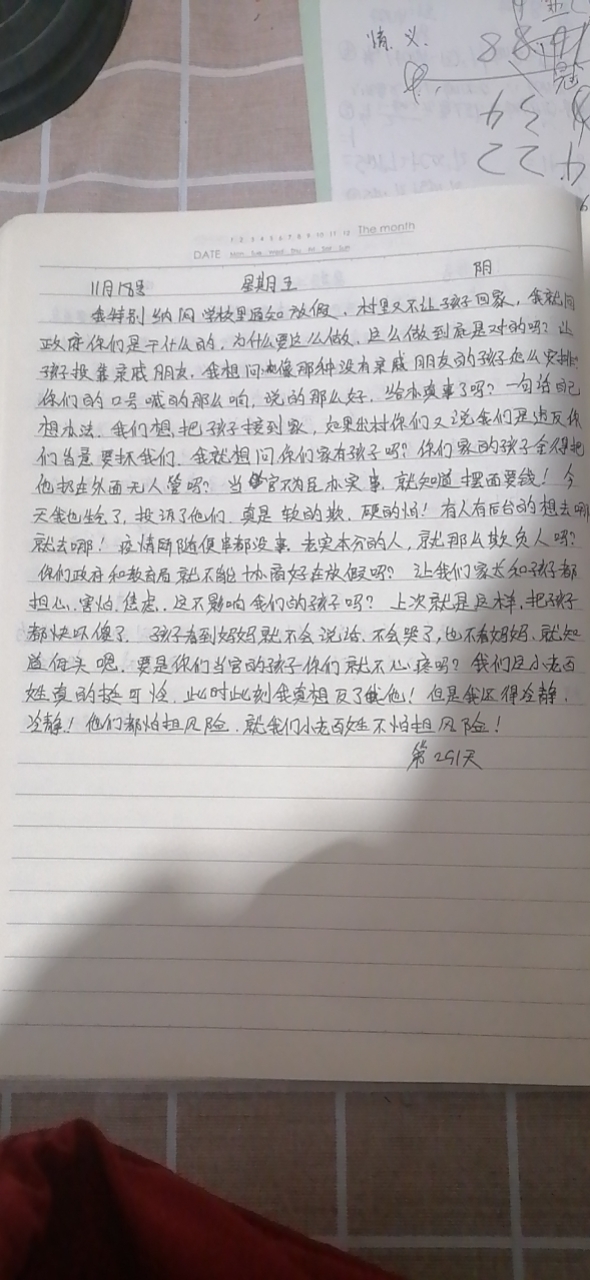 情.义.
8 8
3 4
2 2
The month
1 2 3 4 5 6 7 8 9 10 11 12
DATE Mon Tue Wed Thu Fri Sat Sun
11月18号 星期五 阴
我特别纳闷学校里通知放假，村里又不让孩子回家，我就问
政府你们是干什么的，为什么要这么做，这么做到底是对的吗？让
孩子投靠亲戚朋友，我想问像那种没有亲戚朋友的孩子怎么安排，
你们的口号喊的那么响，说的那么好，给办实事了吗？一句话自己
想办法，我们想把孩子接到家，如果出村你们又说我们是违反你
们当是要抓我们，我就想问你们家有孩子吗？你们家的孩子舍得把
他扔在外面无人管吗？当官不为民办实事，就知道摆面要钱！今
天我也生气了，投诉了他们，真是软的欺，硬的怕！有人有后台的想去哪
就去哪！疫情所随便串都没事，老实本分的人，就那么欺负人吗？
你们政府和教育局就不能协商好在放假吗？让我们家长和孩子都
担心，害怕，焦虑，这不影响我们的孩子吗？上次就是这样，把孩子
都快吓傻了，孩子看到妈妈就不会说话，不会哭了，也不看妈妈，就知
道低头嗯，要是你们当官的孩子你们就不心疼吗？我们这小老百
姓真的挺可怜，此时此刻我真想反了他！但是我还得冷静，
冷静！他们都怕担风险，就我们小老百姓不怕担风险！
第291天